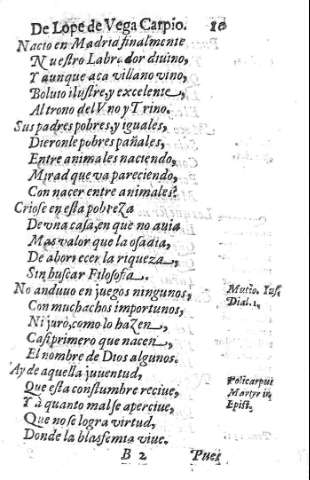 De Lope de Vega Carpio. 10
Nacio en Madrid finalmente
Nuestro Labrador diuino,
Y aunque aca villano vino,
Boluio ilustre, y excelente,
Al trono del Vno y Trino.
Sus padres pobres, y iguales,
Dieronle pobres pañales,
Entre animales naciendo,
Mirad que va pareciendo,
Con nacer entre animales?
Criose en esta pobreza
De vna casa, en que no auia
Mas valor que la osadia,
De aborrecer la riqueza,
Sin buscar Filosofia.
No anduuo en juegos ningunos,
Mutio. Iusti
Con muchachos importunos,
Dial. 1,
Ni jurò, como lo hazen,
Casi primero que nacen,
El nombre de Dios algunos.
Ay de aquella juventud,
Que esta constumbre reciue,
Policarpus
Y à quanto mal se aperciue,
Martyr in
Que no se logra virtud,
Epist,
Donde la blasfemia viue.
B 2 Pues